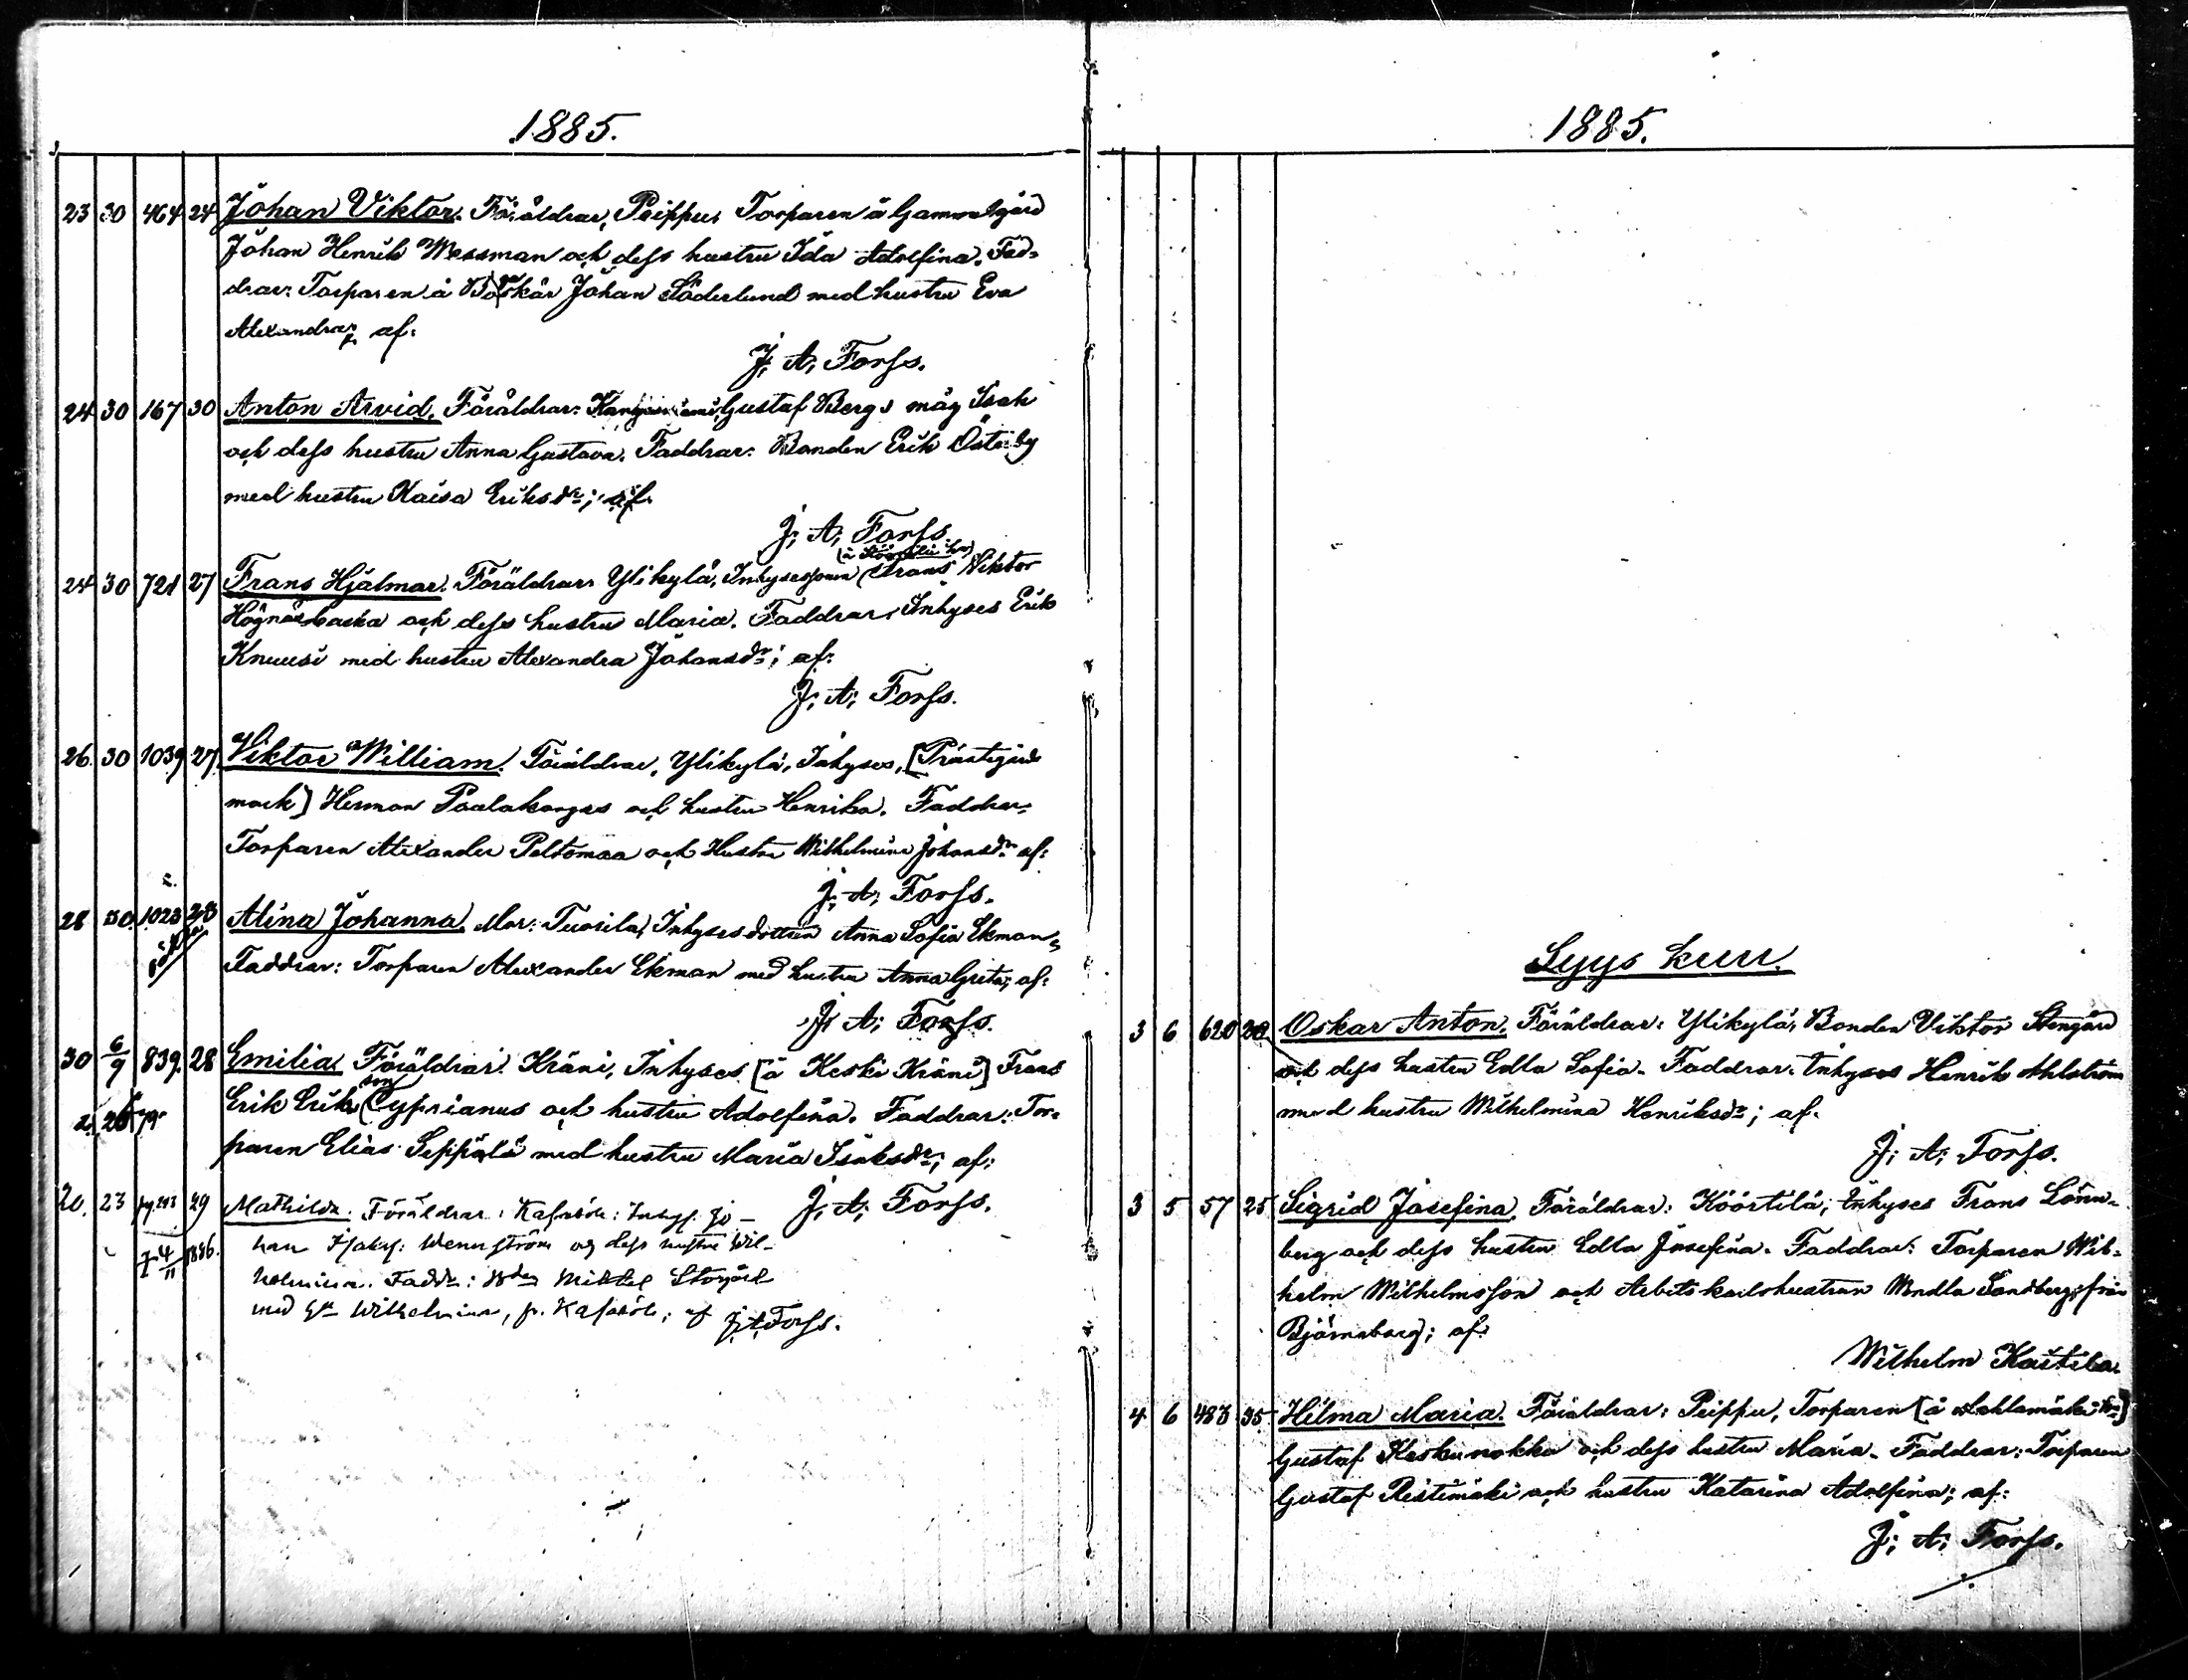 1885.
23 30 464 24 Johan Viktor. Föräldrar, Peippu, Torparen å Gammelgård
Johan Henrik Messman och dess hustru Ida Adolfina. Fad-
drar: Torparen å Johan Söderlund med hustru Eva
Alexandra, af:
J. A. Forss.
24 30 167 30 Anton Arvid. Föräldrar: Gustaf Bergs måg Isak
och dess hustru Anna Gustava. Faddrar: Bonden Erik Österby
med hustru Kaisa Eriksdr; af.
J. A. Forss
24 30 721 27 Frans Hjalmar. Föräldrar: Ylikylä, Inhysessonen Frans Viktor
och dess hustru Maria. Faddrar: Inhyses Erik
Knuusi med hustru Alexandra Johansdr; af:
J. A. Forss.
26. 30 1039 27 Viktor William. Föräldrar, Ylikylä, Inhyses, [Prästgårds
mark] Herman och hustru Henrika. Faddrar:
Torparen Alexander Peltomaa och Hustru Wilhelmina Johansdr af:
J. A. Forss.
28 30. 1023 23 Alina Johanna. Mor: Tuorila, Inhysesdottren Anna Sofia Ekman,
Faddrar: Torparen Alexander Ekman med hustru Anna Greta; af:
J. A. Forss.
30 6/9 839. 28 Emilia. Föräldrar. Kräni, Inhyses [å Keski Kräni] Frans
Erik Eriksson Cyprianus och hustru Adolfina. Faddrar: Tor-
paren Elias Seppälä med hustru Maria Isaksdr; af:
J. A. Forss.
20. 23 pg. 293 29 Mathilda. Föräldrar: Kasaböle: Inhys. Jo-
han Isaks: Wennström og dess hustru Wil-
helmina. Fadd: Mikkel Storgård
med Wilhelmina, fr. Kasaböle; af J. A. Forss.
1886.
1885.
Syys kuu.
3 6 620 20 Oskar Anton. Föräldrar: Ylikylä, Bonden Viktor Stengård
och dess hustru Edla Sofia. Faddrar: Inhyses Henrik Ahlström
med hustru Wilhelmina Henriksdr; af.
J. A. Forss.
3 5 57 25 Sigrid Josefina. Föräldrar: Köörtilä; Inhyses Frans Lönn-
berg och dess hustru Edla Josefina. Faddrar: Torparen Wil-
helm Wilhelmsson och Arbetskarlshustrun Wendla Sandberg, från
Björneborg; af:
Wilhelm Kastila.
4 6 483 35 Hilma Maria. Föräldrar: Peippu, Torparen [å
Gustaf Keskinokka och dess hustru Maria. Faddrar: Torparen
Gustaf Ristimäki och hustru Katarina Adolfina; af:
J. A. Forss.